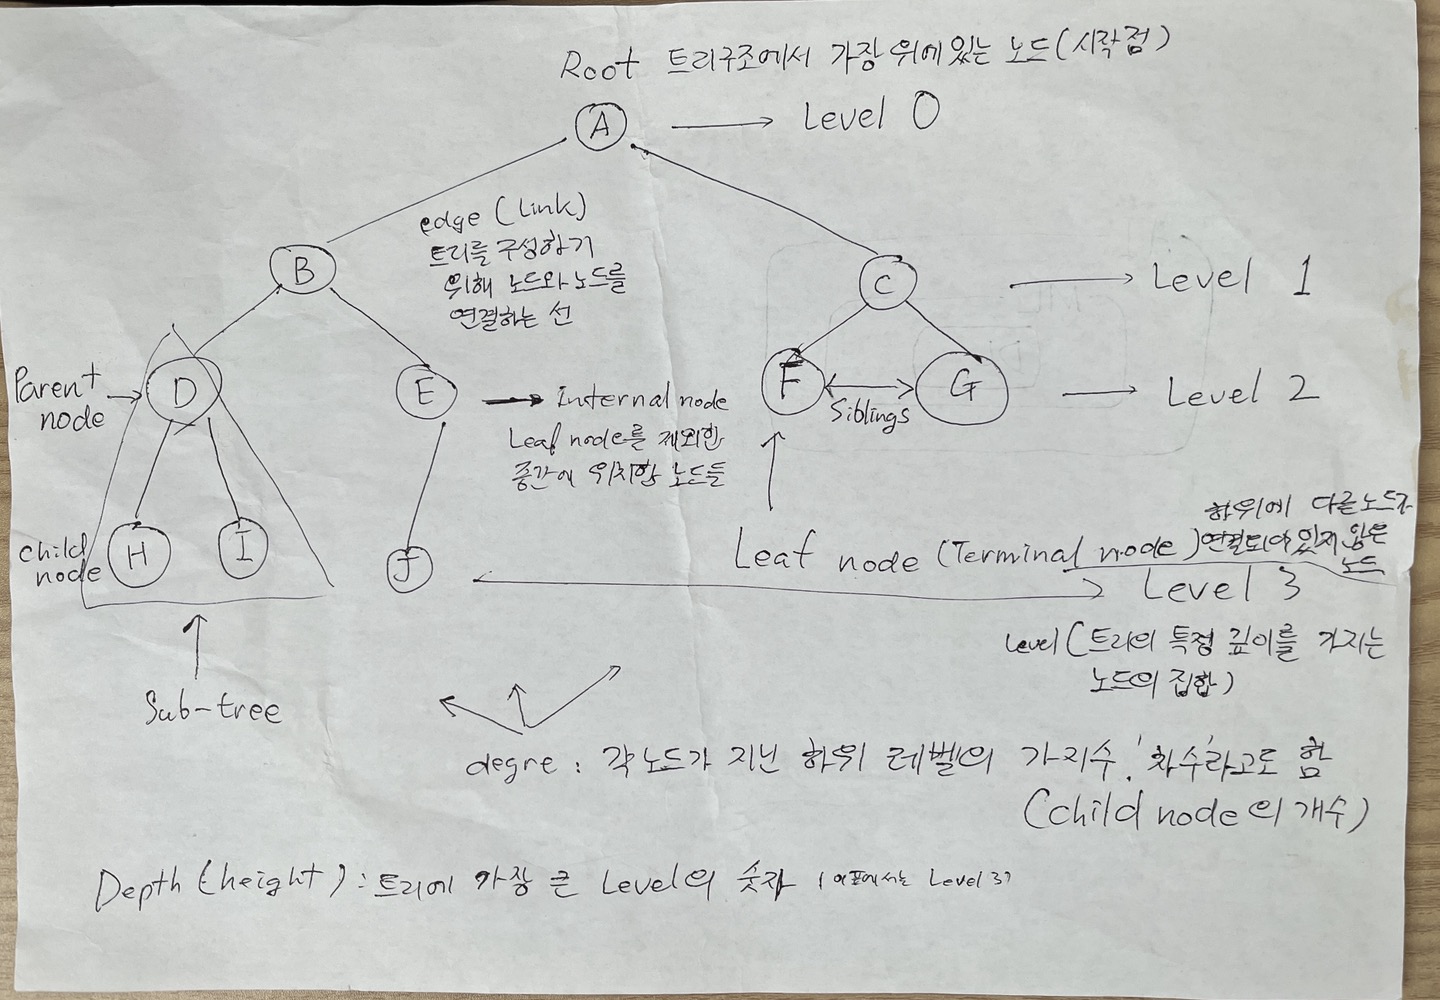 Root 트리구조에서 가장 위에 있는 노드(시작점)
A → Level 0
edge (Link)
트리를 구성하기
위해 노드와 노드를
연결하는 선
B
C → Level 1
Parent
node → D
E → Internal node
Leaf node를 제외한
중간에 위치한 노드들
F ↔ G → Level 2
Siblings
child
node H I
J
하위에 다른 노드가
Leaf node (Terminal node) 연결되어 있지 않은
노드
Level 3
Level (트리의 특정 깊이를 가지는
노드의 집합)
Sub-tree
degre : 각 노드가 지닌 하위 레벨의 가지수. '차수'라고도 함
(child node의 개수)
Depth (height) : 트리에 가장 큰 Level의 숫자 (이 표에서는 Level 3)